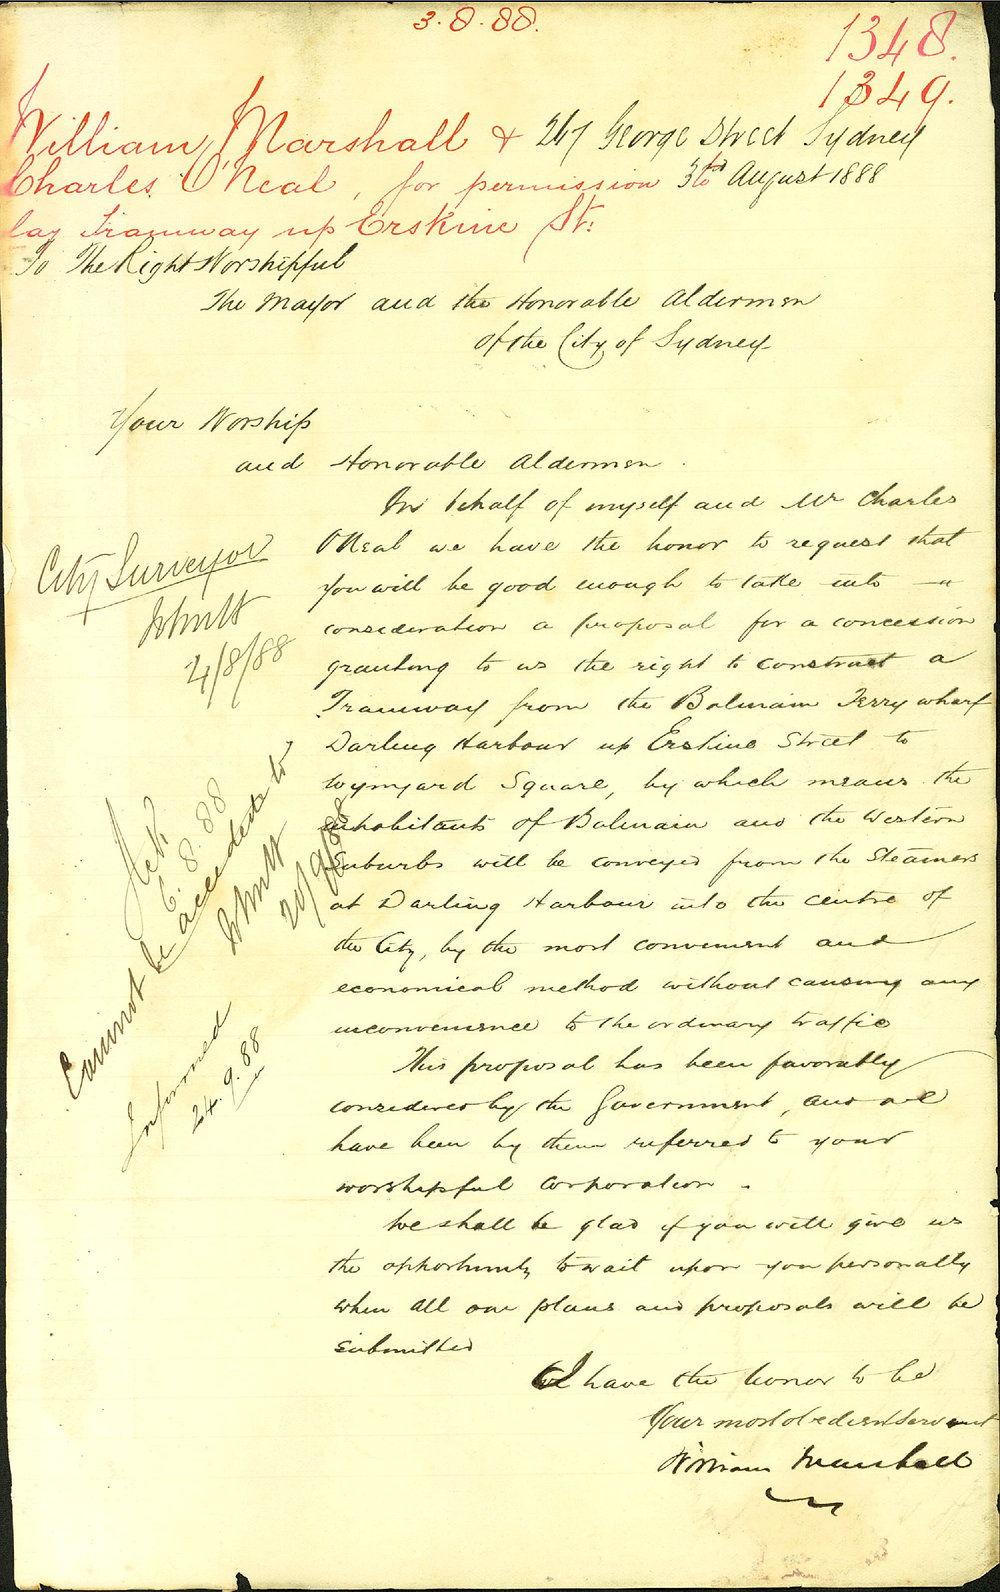 3.8.88.
1348.
1349.
William Marshall & 267 George Street Sydney
Charles O'Neal, for permission to 3rd August 1888
lay Tramway up Erskine St.
To The Right Worshipful
The Mayor and the Honorable Aldermen
of the City of Sydney
Your Worship
and Honorable Aldermen.
On behalf of myself and Mr Charles
O'Neal we have the honor to request that
you will be good enough to take into
consideration a proposal for a concession
granting to us the right to construct a
Tramway from the Balmain Ferry wharf
Darling Harbour up Erskine Street to
Wynyard Square, by which means the
inhabitants of Balmain and the Western
Suburbs will be conveyed from the Steamers
at Darling Harbour into the centre of
the City, by the most convenient and
economical method without causing any
inconvenience to the ordinary traffic
This proposal has been favorably
considered by the Government, and we
have been by them referred to your
worshipful Corporation.
We shall be glad if you will give us
the opportunity to wait upon you personally
when all our plans and proposals will be
submitted
I have the honor to be
Your most obedient servant
William Marshall
City Surveyor
4/8/88
Ack
6.8.88
Cannot be acceded to
20/9/88
Informed
24.9.88